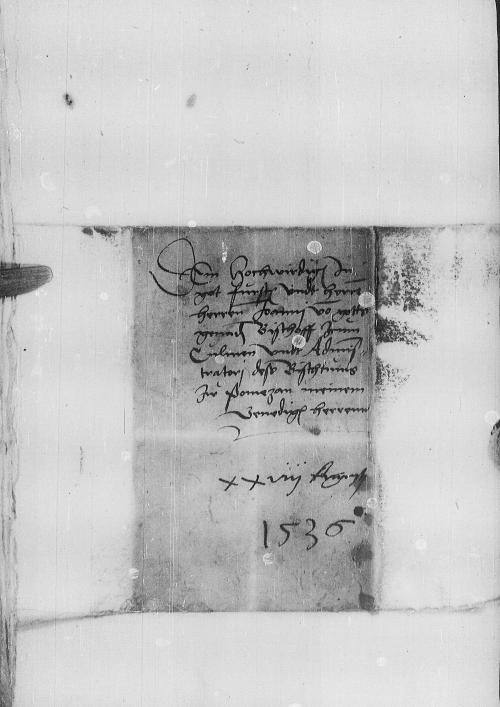 Dem Hochwirdigen In
got fursten unnd herrn
herrn Joanni vo gotts
gennad Bischoff zum
Culmen unnd Adminis-
tratori dess Bischtums
zu Pomezan meinem
Genedigen herrenn
xxviij Augusti
1536